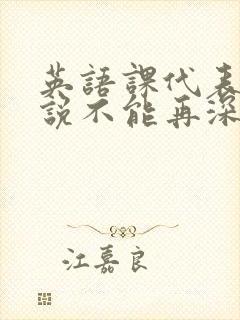 英語課代表
說不能再深
江嘉良